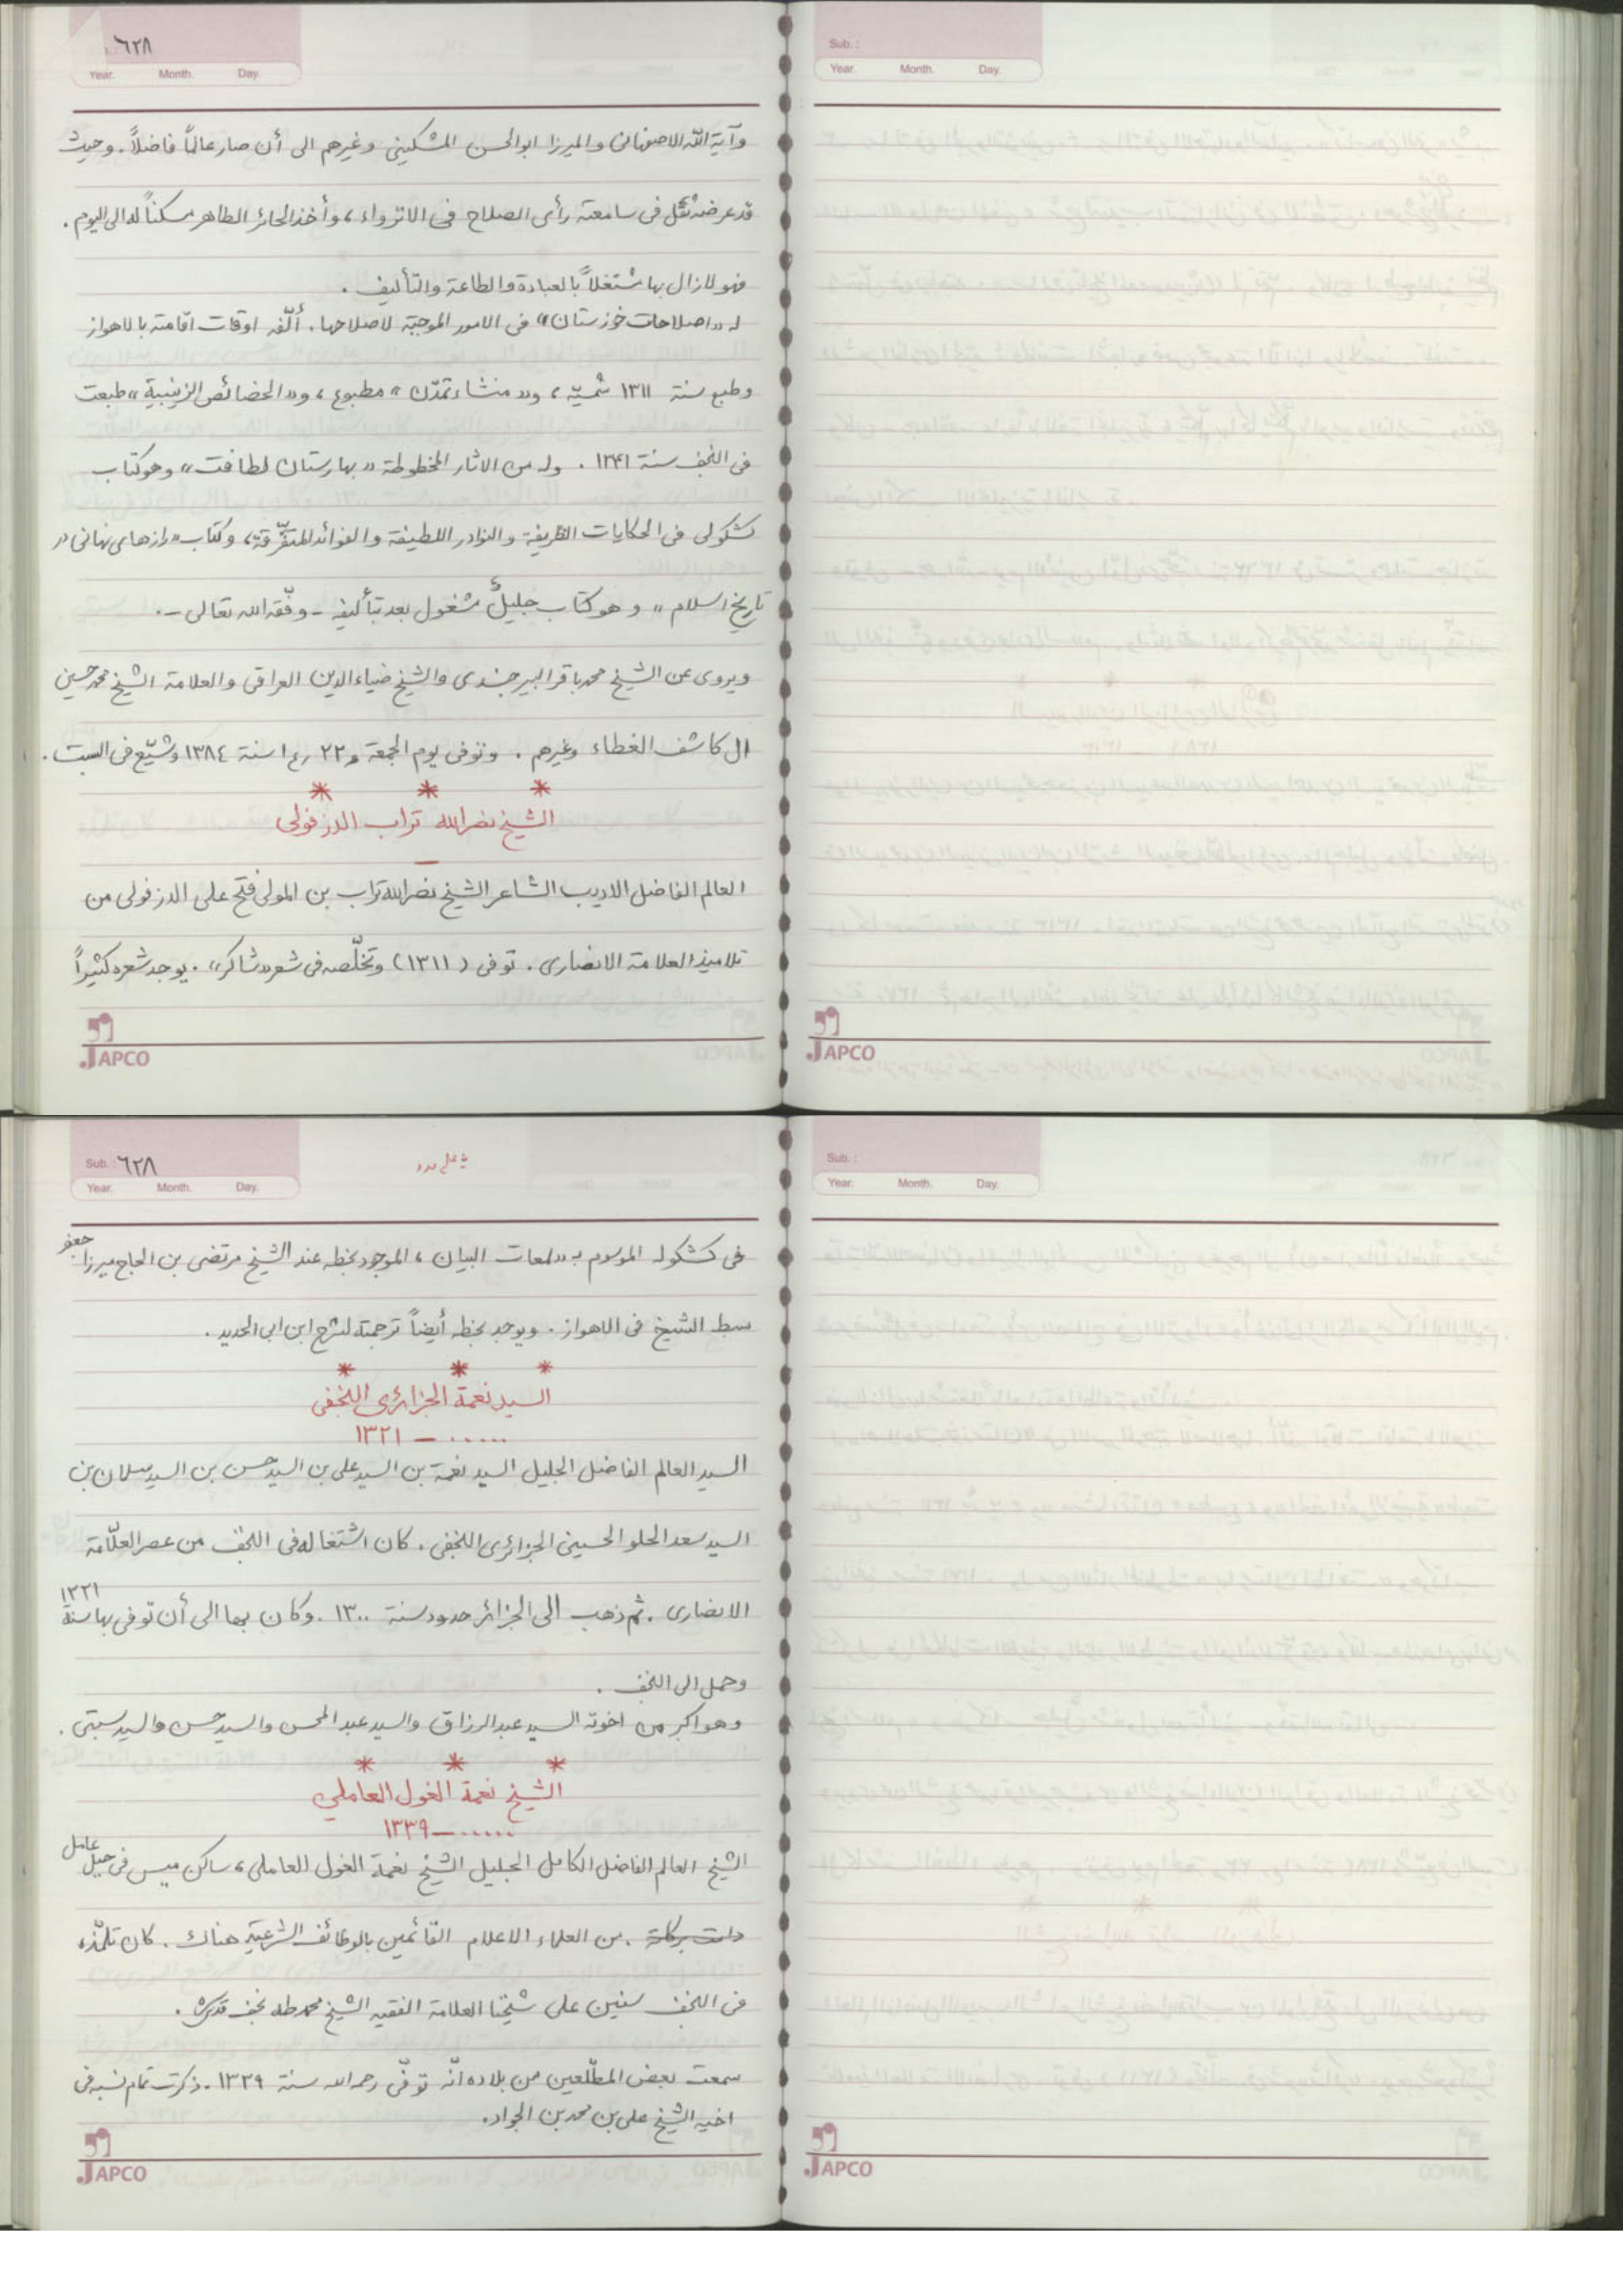 ٦٢٨
Year. Month. Day.
وآية الله الاصفهانی والمیرزا ابوالحسن المشکینی وغیرهم الی أن صار عالماً فاضلاً. وحیث
قد عرضه ثقل فی سامعته رأی الصلاح فی الانزواء، وأخذ الحائر الطاهر مسکناً له الی الیوم.
فهو لازال بها مشتغلاً بالعبادة والطاعة والتألیف.
له «اصلاحات خوزستان» فی الامور الموجبة لاصلاحها. ألّفه اوقات اقامته بالاهواز
وطبع سنة ١٣١١ شمسیّة، و«منشاء تمدّن» مطبوع، و«الخصائص الزینبیة» طبعت
فی النجف سنة ١٣٤١. وله من الاثار المخطوطة «بهارستان لطافت» وهو کتاب
کشکولی فی الحکایات الظریفة والنوادر اللطیفة والفوائد المتفرّقة، وکتاب «رازهای نهانی در
تاریخ اسلام» وهو کتاب جلیلٌ مشغول بعد بتألیفه - وفّقه الله تعالی -.
ویروی عن الشیخ محمد باقر البیرجندی والشیخ ضیاء الدین العراقی والعلامة الشیخ محمد حسین
ال کاشف الغطاء وغیرهم. وتوفی یوم الجمعة ٢٢ ع١ سنة ١٣٨٤ وشیّع فی السبت.
* * *
الشیخ نصرالله تراب الدزفولی
العالم الفاضل الادیب الشاعر الشیخ نصرالله تراب بن المولی فتح علی الدزفولی من
تلامیذ العلامة الانصاری. توفی (١٣١١) وتخلّصه فی شعره «شاکر». یوجد شعره کثیراً
JAPCO
Sub.:
Year. Month. Day.
JAPCO
Sub.: ٦٢٨
Year. Month. Day.
فی کشکوله الموسوم بـ«لمعات البیان، الموجود بخطه عند الشیخ مرتضی بن الحاج میرزا جعفر
سبط الشیخ فی الاهواز. ویوجد بخطه أیضاً ترجمة لشرح ابن ابی الحدید.
* * *
السید نعمة الجزائری النجفی
...... – ١٣٢١
السید العالم الفاضل الجلیل السید نعمة بن السید علی بن السید حسن بن السید سلمان بن
السید سعد الحلو الحسینی الجزائری النجفی. کان اشتغاله فی النجف من عصر العلّامة
الانصاری. ثم ذهب الی الجزائر حدود سنة ١٣٠٠. وکان بها الی أن توفی بها سنة ١٣٢١
وحمل الی النجف.
وهو اکبر من اخوته السید عبد الرزاق والسید عبد المحسن والسید حسن والسید سبتی.
* * *
الشیخ نعمة الغول العاملی
...... – ١٣٣٩
الشیخ العالم الفاضل الکامل الجلیل الشیخ نعمة الغول العاملی، ساکن میس فی جبل عامل
دامت برکاته. من العلماء الاعلام القائمین بالوظائف الشرعیّة هناک. کان تلمّذه
فی النجف سنین علی شیخنا العلامة الفقیه الشیخ محمد طه نجف قدس سره.
سمعت بعض المطّلعین من بلاده انّه توفّی رحمه الله سنة ١٣٣٩. ذکرت تمام نسبه فی
اخیه الشیخ علی بن محمد بن الجواد.
JAPCO
Sub.:
Year. Month. Day.
JAPCO